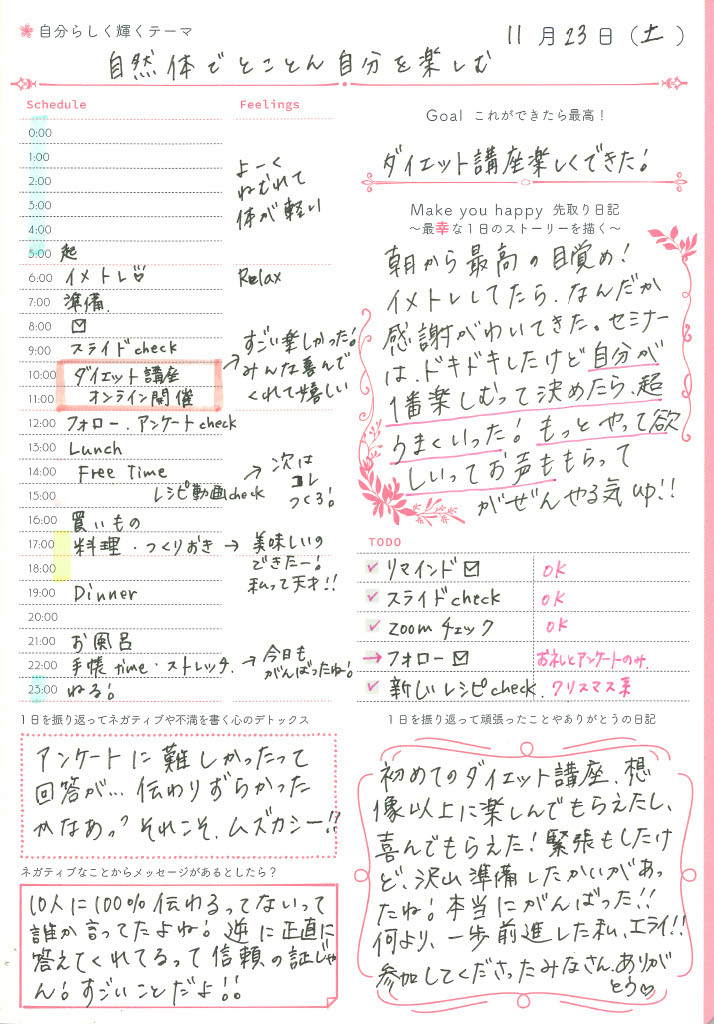 自分らしく輝くテーマ
11月23日(土)
自然体でとことん自分を楽しむ
Schedule
Feelings
0:00
1:00
2:00
3:00
4:00
5:00 起
6:00 イメトレ♡
7:00 準備.
8:00 ☑
9:00 スライドcheck
10:00 ダイエット講座
11:00 オンライン開催
12:00 フォロー.アンケートcheck
13:00 Lunch
14:00 Free Time
15:00 レシピ動画check
16:00 買いもの
17:00 料理・つくりおき →
18:00
19:00 Dinner
20:00
21:00 お風呂
22:00 手帳time・ストレッチ. →
23:00 ねる!
よーく
ねむれて
体が軽い
Relax
→ すごい楽しかった!
みんな喜んで
くれて嬉しい
→ 次は
コレ
つくる!
美味しいの
できたー!
私って天才!!
今日も
がんばったね!
Goal これができたら最高!
ダイエット講座楽しくできた!
Make you happy 先取り日記
〜最幸な1日のストーリーを描く〜
朝から最高の目覚め!
イメトレしてたら、なんだか
感謝がわいてきた。セミナー
は、ドキドキしたけど自分が
1番楽しむって決めたら、超
うまくいった! もっとやって欲
しいってお声ももらって
がぜんやる気up!!
TODO
✓ リマインド☑ OK
✓ スライドcheck OK
✓ zoomチェック OK
→ フォロー☑ お礼とアンケートのみ.
✓ 新しいレシピcheck. クリスマス系
1日を振り返ってネガティブや不満を書く心のデトックス
アンケートに難しかったって
回答が… 伝わりずらかった
かなあっ? それこそ、ムズカシー!!
ネガティブなことからメッセージがあるとしたら?
10人に100%伝わるってないって
誰か言ってたよね! 逆に正直に
答えてくれてるって信頼の証じゃ
ん! すごいことだよ!!
1日を振り返って頑張ったことやありがとうの日記
初めてのダイエット講座、想
像以上に楽しんでもらえたし、
喜んでもらえた! 緊張もしたけ
ど、沢山準備したかいがあっ
たね! 本当にがんばった!!
何より、一歩前進した私、エライ!!
参加してくださったみなさん、ありが
とう♡